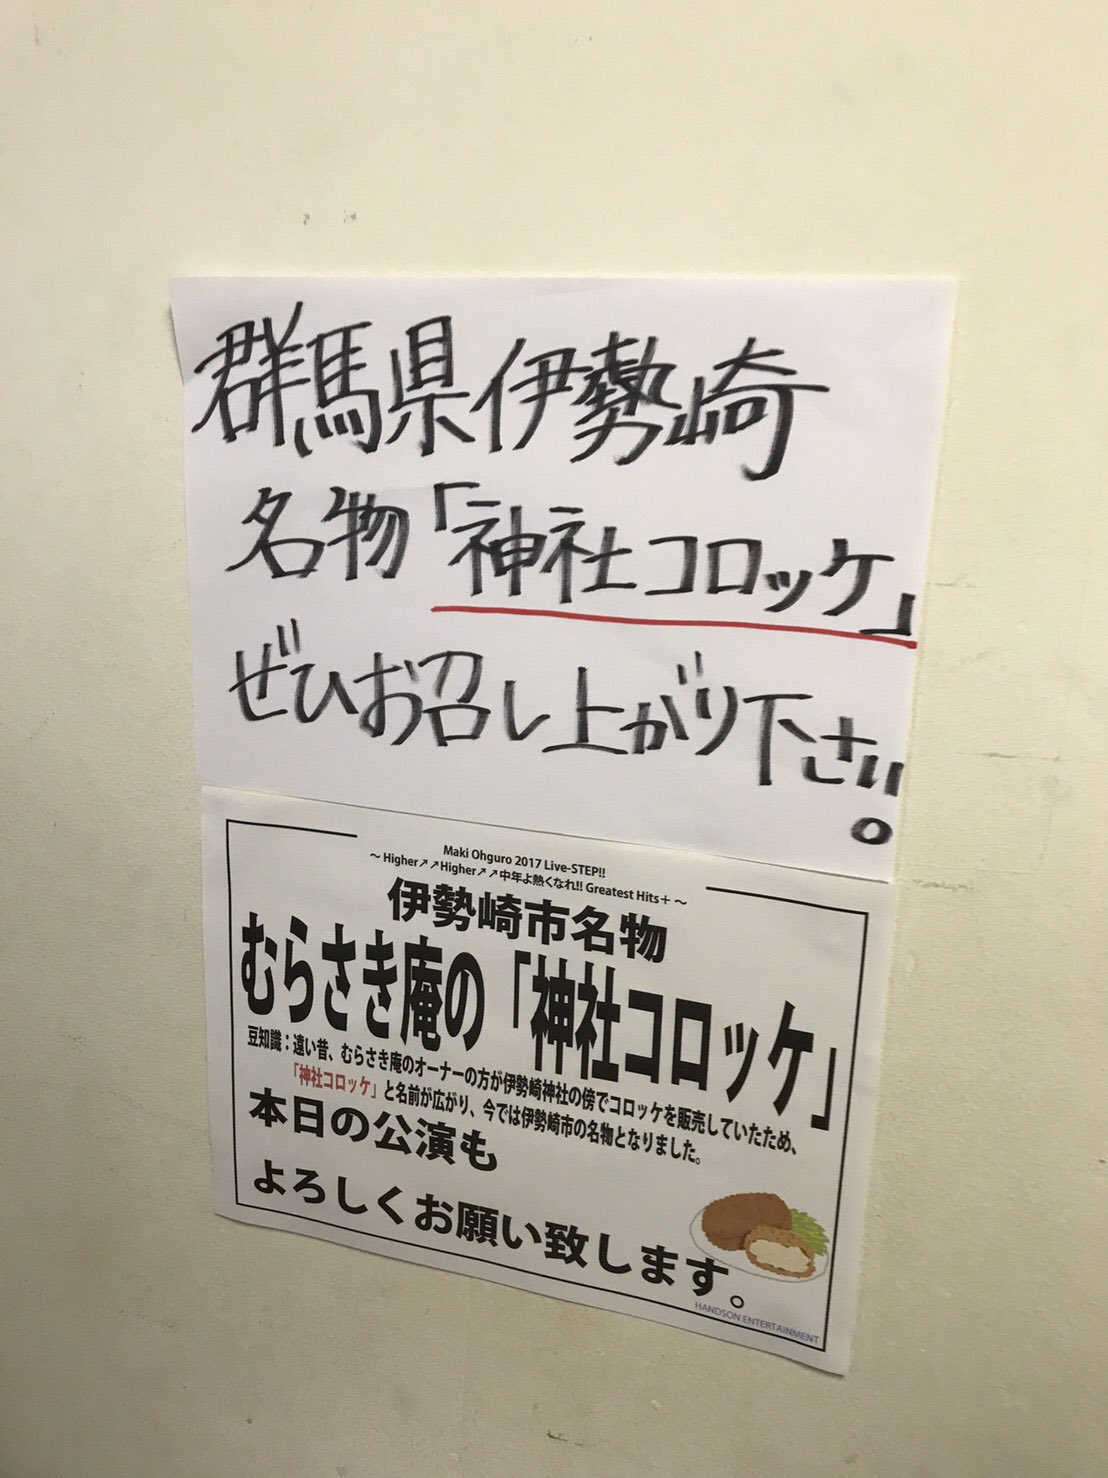 群馬県伊勢崎
名物「神社コロッケ」
ぜひお召し上がり下さい。
Maki Ohguro 2017 Live-STEP!!
～ Higher↗↗Higher↗↗中年よ熱くなれ!! Greatest Hits＋ ～
伊勢崎市名物
むらさき庵の「神社コロッケ」
豆知識：遠い昔、むらさき庵のオーナーの方が伊勢崎神社の傍でコロッケを販売していたため、
「神社コロッケ」と名前が広がり、今では伊勢崎市の名物となりました。
本日の公演も
よろしくお願い致します。
HANDSON ENTERTAINMENT